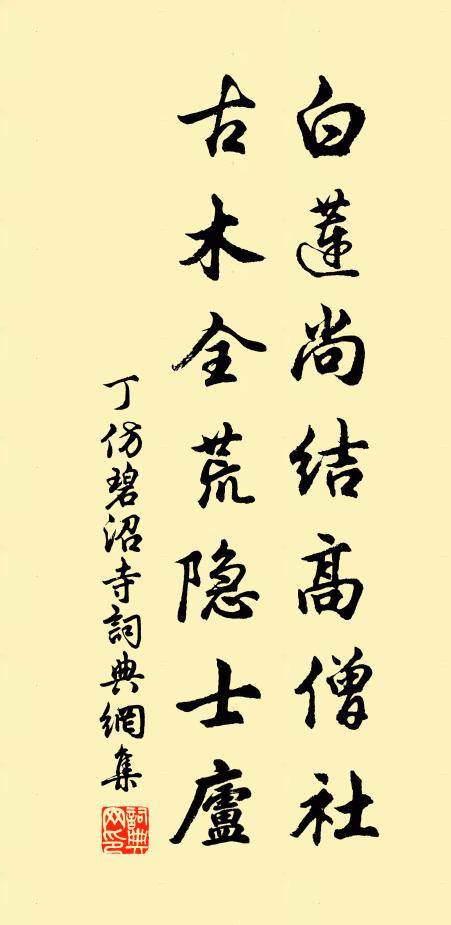 白蓮尚结高僧社
古木全荒隐士廬
丁仿碧沼寺詞典網集
詞典網印